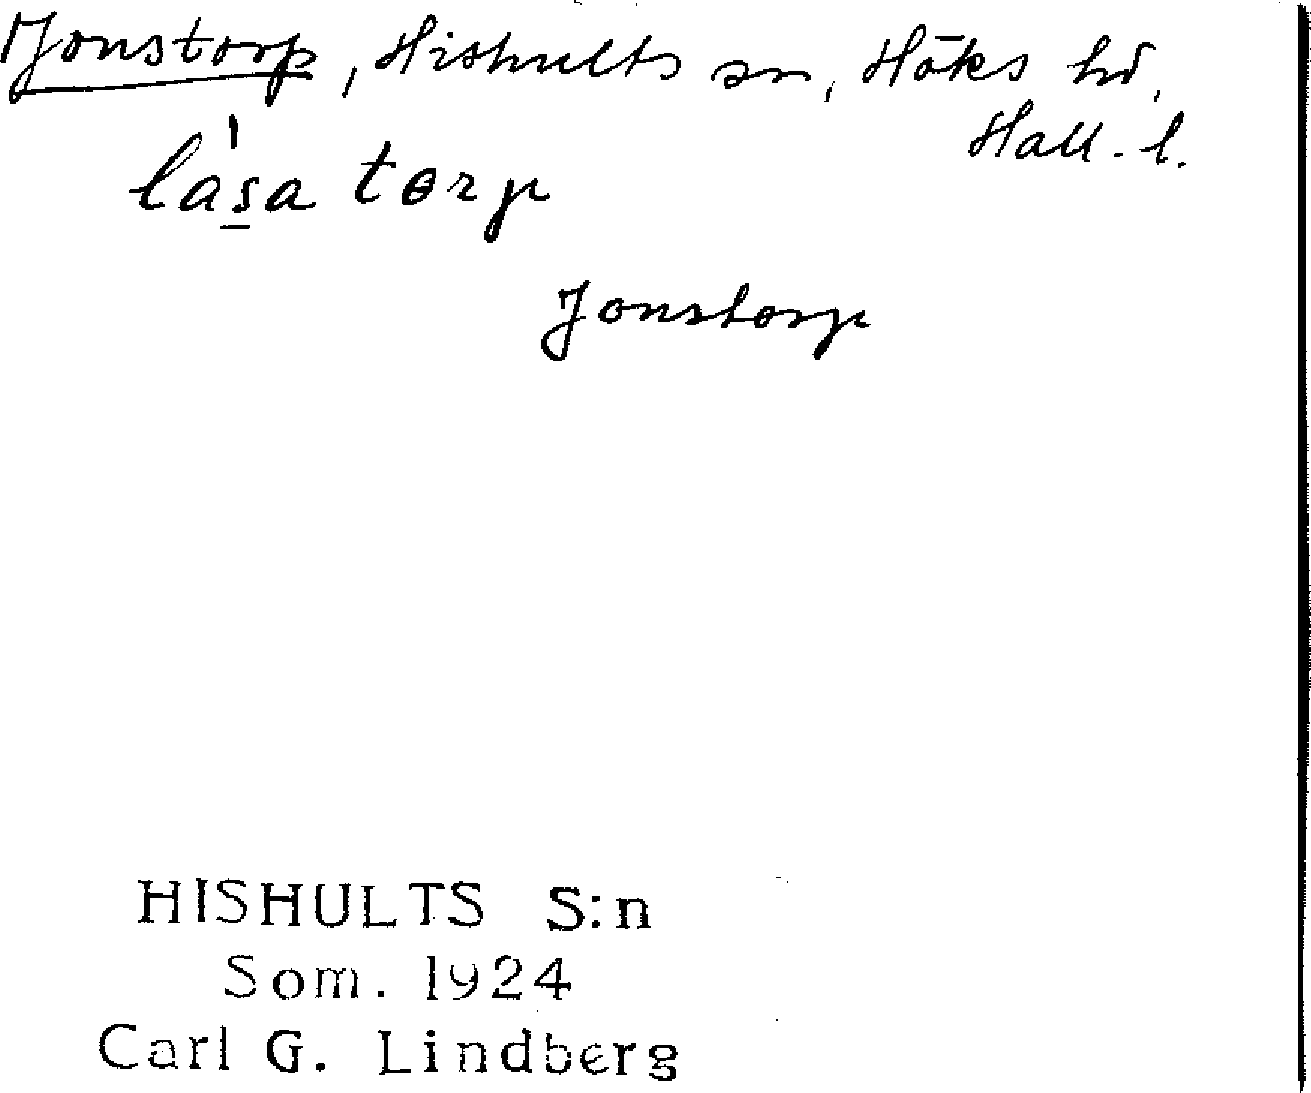 Jonstorp, Hishults sn, Höks hd,
Hall. l.
lása tɵrp
Jonstorp
HISHULTS S:n
Som. 1924
Carl G. Lindberg